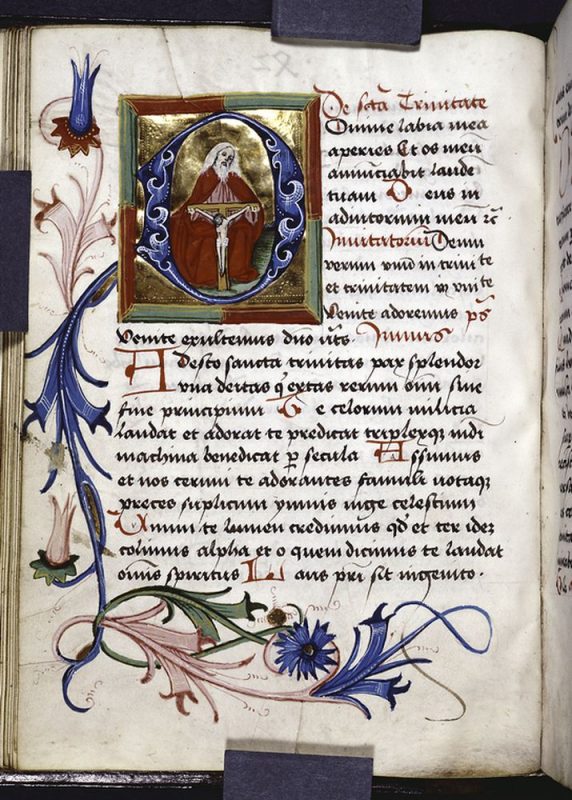 De scta Trinitate
Domine labia mea
aperies Et os meu
annunciabit laude
tuam Deus in
adiutorium meu rc
Inuitatoriu Deum
verum vnu in trinite
et trinitatem in vnite
Venite adoremus ps
Venite exultemus dno uts. Imnus
Adesto sancta trinitas par splendor
vna deitas q extas rerum oim sine
fine principium Te celorum militia
laudat et adorat te predicat triplexq mdi
machina benedicat p secula Assumus
et nos cernui te adorantes famuli uotaq
preces suplicum ymnis iunge celestium
Unum te lumen credimus qd et ter idez
colimus alpha et o quem dicimus te laudat
omis spiritus Laus pri sit ingenito.